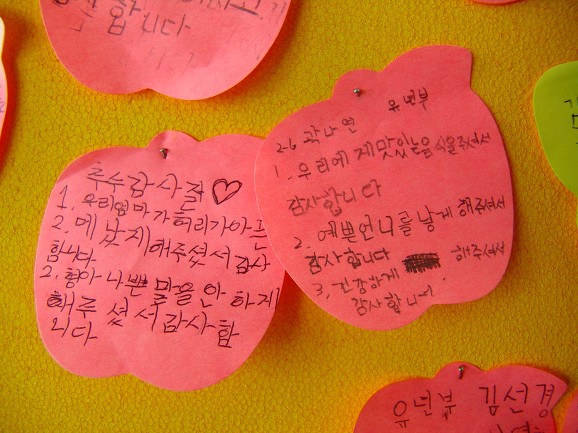 합니다
추수감사절♡
1. 우리엄마가 허리가아픈
2. 메 났게해주셨서 감사
합니다
2. 형아 나쁜 말을 안 하게
해주 셨서 감사합
니다
유년부
2-6 곽나연
1. 우리에게 맛있는음식을주셔서
감사합니다
2. 예쁜언니를 낳게 해주셔서
감사합니다
3. 건강하게 해주셔서
감사합니다
유년부 김선경